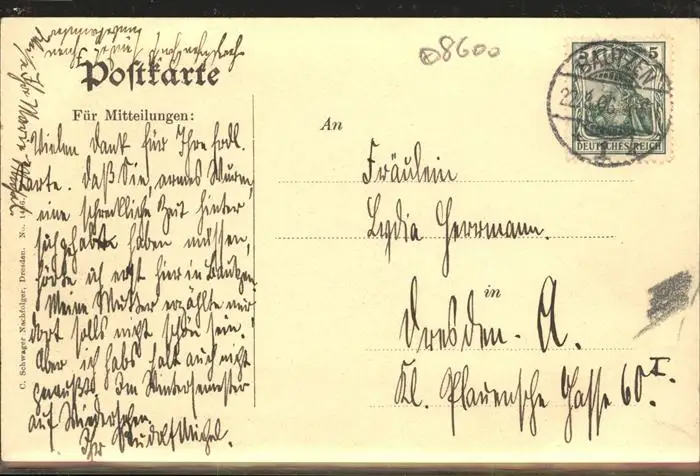 08600
Postkarte
Für Mitteilungen:
Vielen Dank für Ihre frdl.
Karte. Daß Sie, armes Wurm,
eine schreckliche Zeit hinter
sich gehabt haben müssen,
hörte ich erst hier in Bautzen.
Meine Mutter erzählte mir
dort solls nicht schön sein.
Aber ich habs halt auch nicht
gewußt. Im Wintersemester
auf Wiedersehen
Ihr Rudolf
C. Schwager Nachfolger, Dresden. No.
An
Fräulein
Lydia Herrmann.
in
Dresden-A.
Kl. Plauensche Gasse 60 I.
BAUTZEN
5
DEUTSCHES REICH